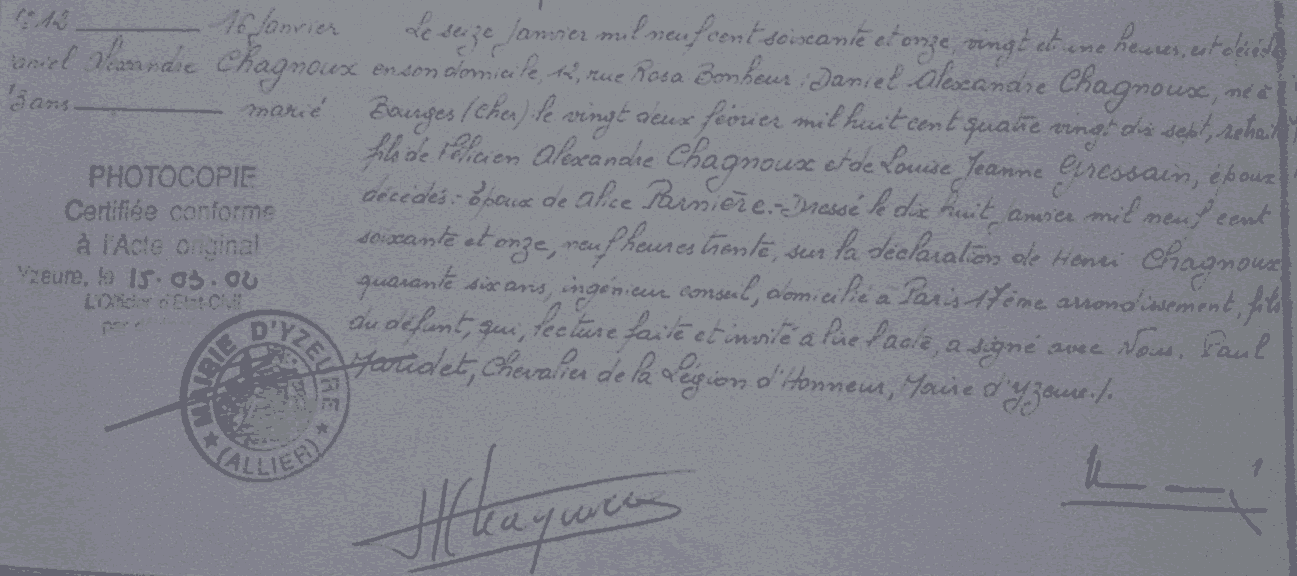 n° 12 16 Janvier
aniel Alexandre Chagnoux
3 ans marié
Le seize Janvier mil neuf cent soixante et onze, vingt et une heures, est décédé
en son domicile, 12, rue Rosa Bonheur : Daniel Alexandre Chagnoux, né à
Bourges (Cher) le vingt deux février mil huit cent quatre vingt dix sept, retraité,
fils de Félicien Alexandre Chagnoux et de Louise Jeanne Gressain, époux
décédés.- Epoux de Alice Parnière.- Dressé le dix huit anvier mil neuf cent
soixante et onze, neuf heures trente, sur la déclaration de Henri Chagnoux
quarante six ans, ingénieur conseil, domicilié à Paris 17ème arrondissement, fils
du défunt, qui, lecture faite et invité à lire l'acte, a signé avec Nous, Paul
, Chevalier de la Légion d'Honneur, Maire d'Yzeure./.
PHOTOCOPIE
Certifiée conforme
à l'Acte original
Yzeure, le 15.03.00
L'Officier d'Etat Civil
MAIRIE D'YZEURE
★ (ALLIER) ★
HChagnoux